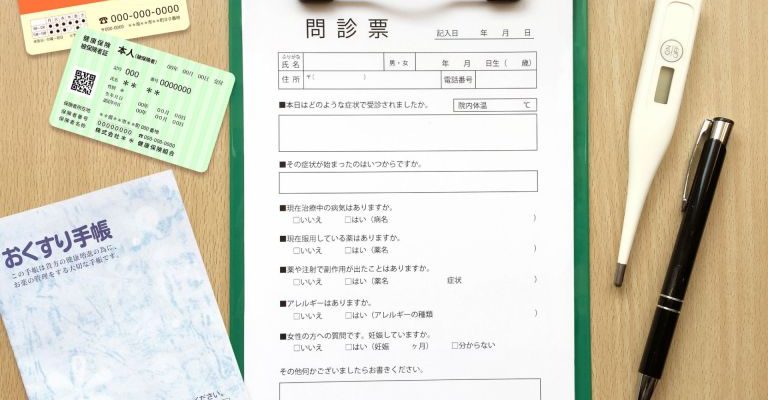 ☎ 000-000-0000
〒000-000
健康保険 本人(被保険者) 00年 00月 00日 交付
被保険者証
記号 000 番号 0000000
氏名 ** **
生年月日 00年 00月 00日
00年 00月 00日
保険者所在地
保険者番号 00000000 ☎000-000-0000
保険者名称 株式会社** 健康保険組合
おくすり手帳
この手帳は貴方の健康増進の為に、
お薬の管理をする大切な手帳です。
問診票
記入日 年 月 日
ふりがな
氏名 男・女 年 月 日生( 歳)
住所 〒( ) 電話番号
■本日はどのような症状で受診されましたか。 院内体温 ℃
■その症状が始まったのはいつからですか。
■現在治療中の病気はありますか。
□いいえ □はい(病名 )
■現在服用している薬はありますか。
□いいえ □はい(薬名 )
■薬や注射で副作用が出たことはありますか。
□いいえ □はい(薬名 症状 )
■アレルギーはありますか。
□いいえ □はい(アレルギーの種類 )
■女性の方への質問です。妊娠していますか。
□いいえ □はい(妊娠 ヶ月) □分からない
その他何かございましたらお書きください。